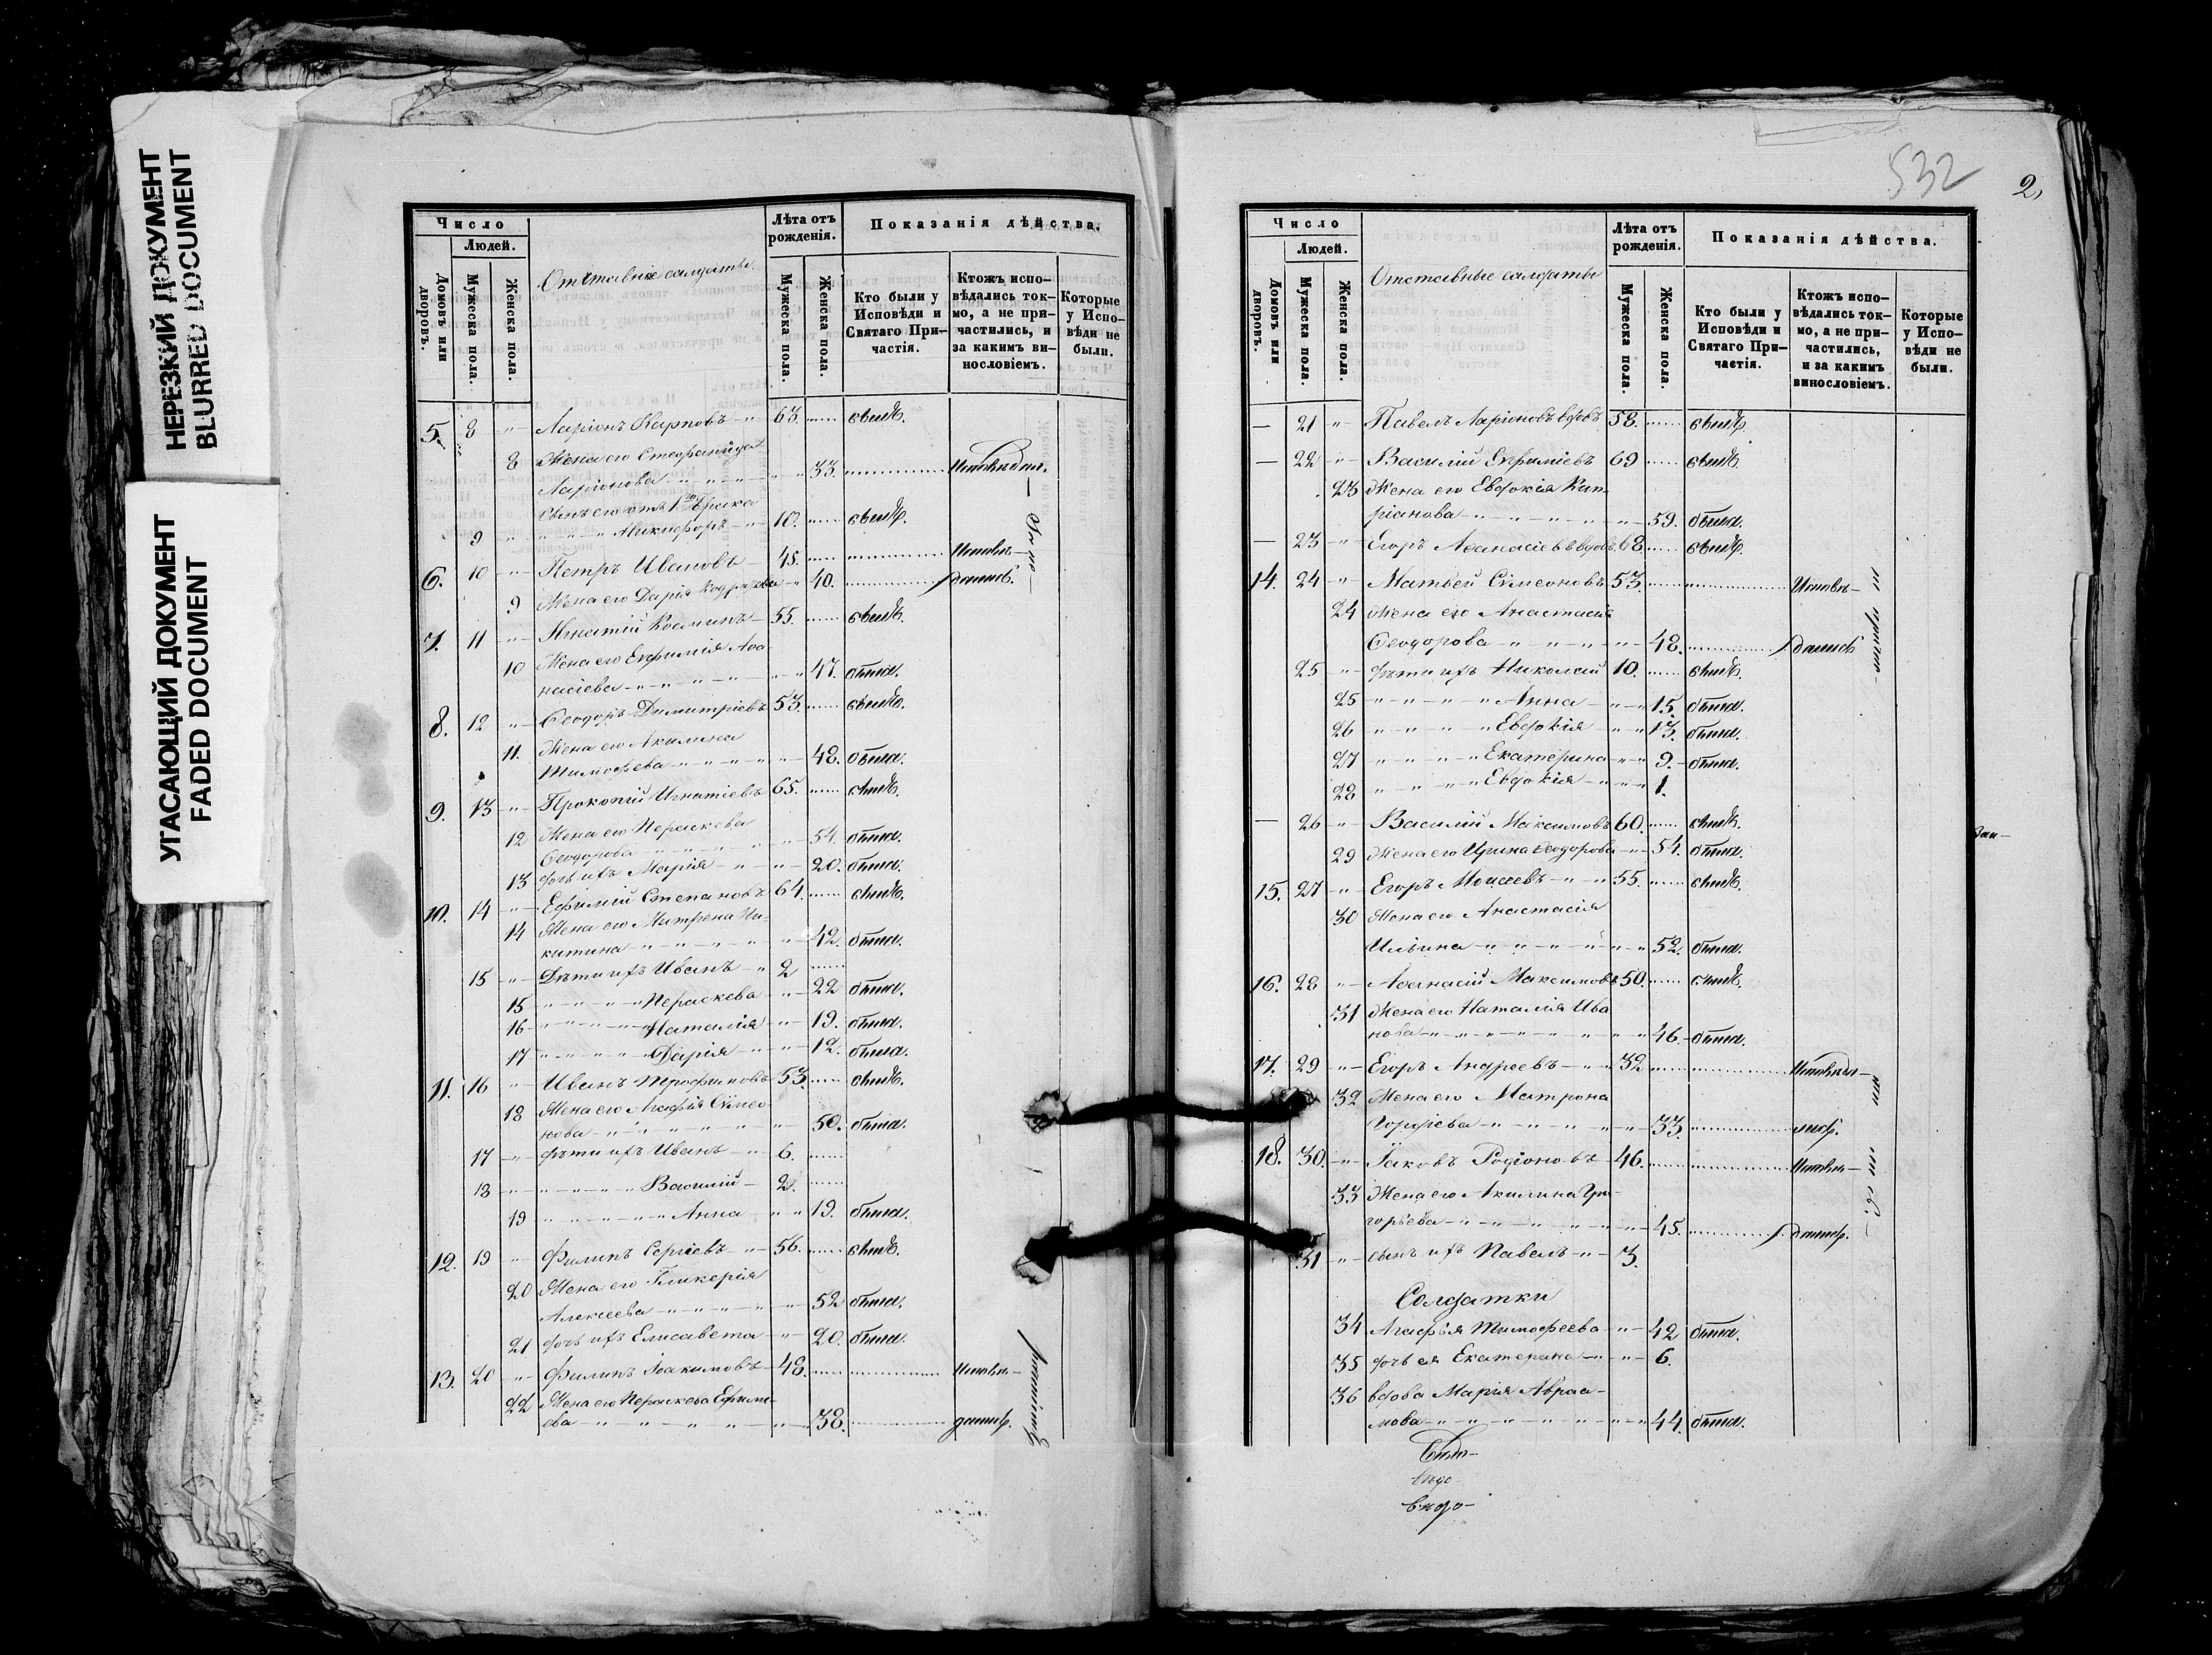 НЕРЕЗКИЙ ДОКУМЕНТ
BLURRED DOCUMENT
УГАСАЮЩИЙ ДОКУМЕНТ
FADED DOCUMENT
Число
Людей.
Домовъ или дворовъ.
Мужеска пола.
Женска пола.
Отставные солдаты
Лѣта отъ рожденія.
Мужеска пола.
Женска пола.
Показанія дѣйства.
Кто были у Исповѣди и Святаго При-
частія.
Ктожъ испо-
вѣдались ток-
мо, а не при-
частились, и
за какимъ ви-
нословіемъ.
Которые
у Испо-
вѣди не
были.
5. 8 Ларіонъ Карповъ 63.
8 Жена его Стефанида
Ларіонова 33.
Сынъ его отъ 1го брака
9 Никифоръ 10.
6. 10 Петръ Ивановъ 45.
9 Жена его Дарія 40.
7. 11 Игнатій Косминъ 55.
10 Жена его Евфимія Аѳа-
насіева 47. была.
8. 12 Ѳеодоръ Димитріевъ 53.
11. Жена его Акилина
Тимофеева 48. была.
9. 13 Прокопій Игнатіевъ 65.
12 Жена его Параскева
Ѳеодорова 54. была.
13 дочь ихъ Марія 20. была.
10. 14 Ефимій Степановъ 64.
14 Жена его Матрена Ни-
китина 42. была.
15 Дѣти ихъ Иванъ 2
15 Параскева 22 была.
16 Наталія 19. была.
17 Дарія 12. была.
11. 16 Иванъ Трофимовъ 53.
18 Жена его Агафія Симео
нова 50. была.
17 дѣти ихъ Иванъ 6.
18 Василій 2.
19 Анна 19. была.
12. 19 Филипъ Сергіевъ 56.
20 Жена его Гликерія
Алексеева 52 была.
21 дочь ихъ Елисавета 20. была.
13. 20 Филипъ Іоакимовъ 48.
22 Жена его Параскева Ефими-
ева 38.
532
2,
Число
Людей.
Домовъ или дворовъ.
Мужеска пола.
Женска пола.
Отставные солдаты
Лѣта отъ рожденія.
Мужеска пола.
Женска пола.
Показанія дѣйства.
Кто были у
Исповѣди и
Святаго При-
частія.
Ктожъ испо-
вѣдались ток-
мо, а не при-
частились,
и за какимъ
винословіемъ.
Которые
у Испо-
вѣди не
были.
— 21 Павелъ Ларіоновъ вдовъ 58.
— 22 Василій Евфиміевъ 69
23 Жена его Евдокія Кип-
ріанова 59. была.
— 23 Егоръ Аѳанасіевъ вдовъ 68.
14. 24 Матвей Симеоновъ 53.
24 Жена его Анастасія
Ѳеодорова 48.
25 дѣти ихъ Николай 10.
25 Анна 15. была.
26 Евдокія 13. была.
27 Екатерина 9. была.
28 Евдокія 1.
— 26 Василій Максимовъ 60.
29 Жена его Ирина Ѳеодорова 54. была.
15. 27 Егоръ Моисеевъ 55.
30 Жена его Анастасія
Ильина 52. была.
16. 28 Аѳанасій Максимовъ 50.
31 Жена его Наталія Ива
нова 46. была.
17. 29 Егоръ Андреевъ 32
32 Жена его Матрона
33.
18. 30. Іаковъ Родіоновъ 46.
33 Жена его Акилина Гри-
горьева 45.
31 сынъ ихъ Павелъ 3.
Солдатки
34 Агафія Тимофеева 42 была.
35 дочь ея Екатерина 6.
36 вдова Марія Авраа-
мова 44. была.